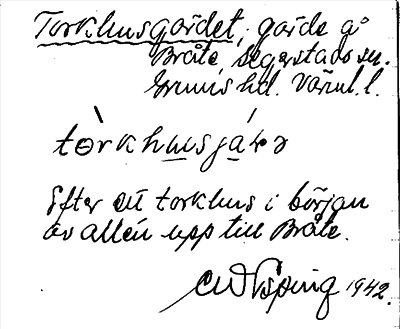 Torkhusgärdet, gärde på
Bråte Segerstads sn.
Grums hd. Värml. l.
tòrkhusjáɽə
Efter ett torkhus i början
av allén upp till Bråte.
1942.